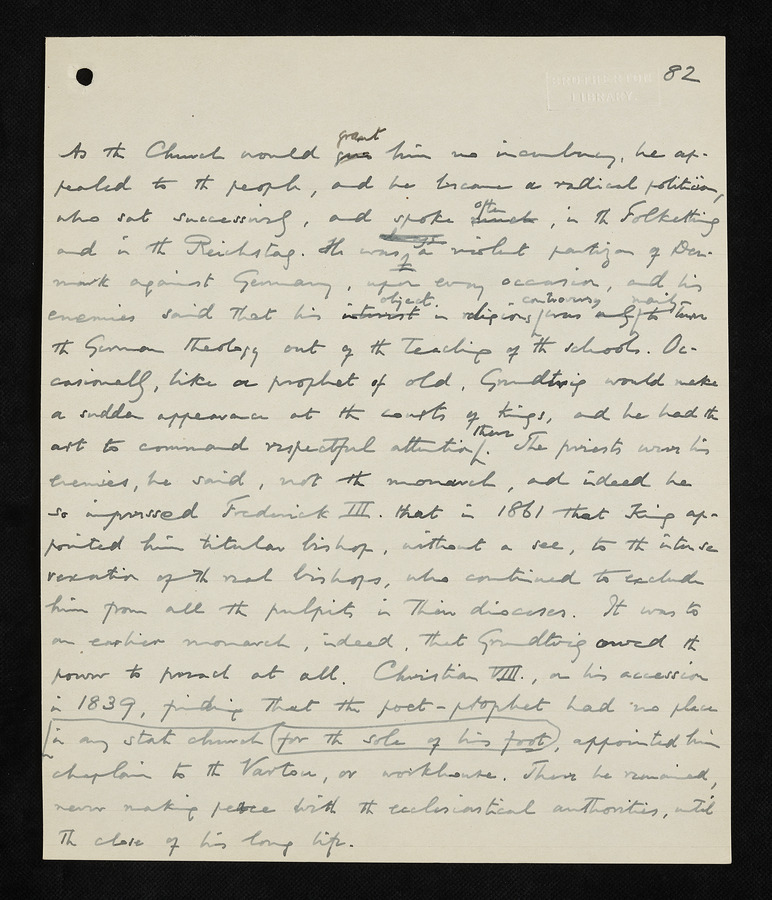 BROTHERTON
LIBRARY
82
grant
As the Church would give him no incumbency, he ap-
pealed to the people, and he became a radical politician,
often
who sat successively, and spoke much, in the Folketting
and in the Reichstag. He was a violent partizan of Den-
mark against Germany, upon every occasion, and his
object controversy mainly
enemies said that his interest in religious was only to turn
the German theology out of the teaching of the schools. Oc-
casionally, like a prophet of old, Grundtvig would make
a sudden appearance at the courts of kings, and he had the
there
art to command respectful attention. The priests were his
enemies, he said, not the monarch, and indeed he
so impressed Frederick III. that in 1861 that King ap-
pointed him titular bishop, without a see, to the intense
vexation of the real bishops, who continued to exclude
him from all the pulpits in their dioceses. It was to
an earlier monarch, indeed, that Grundtvig owed the
power to preach at all. Christian VIII., on his accession
in 1839, finding that the poet-prophet had no place
in any state church for the sole of his foot, appointed him
chaplain to the Vartou, or workhouse. There he remained,
never making peace with the ecclesiastical authorities, until
the close of his long life.